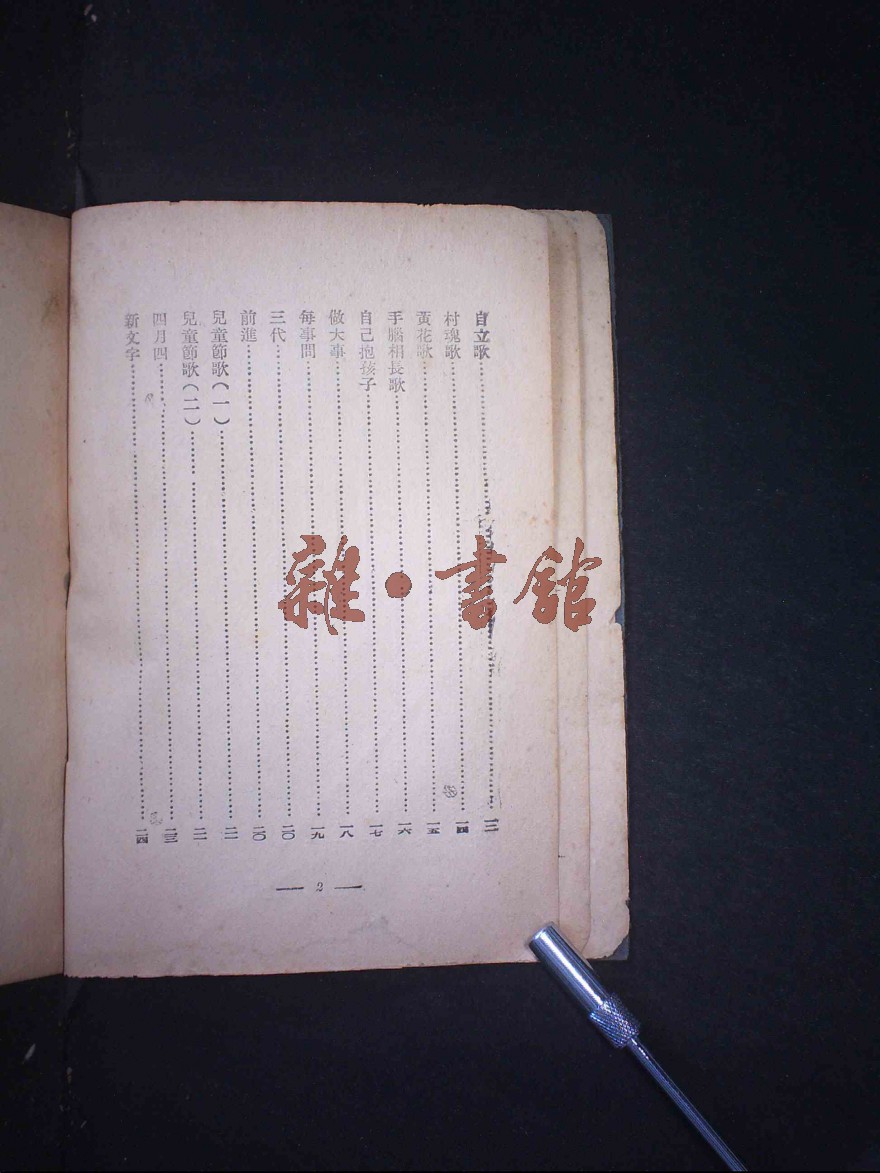 自立歌……一二
村魂歌……一四
黃花歌……一五
手腦相長歌……一六
自己抱孩子……一七
做大事……一八
每事問……一九
三代……二〇
前進……二〇
兒童節歌(一)……二一
兒童節歌(二)……二一
四月四……二三
新文字……二四
— 2 —
雜·書館